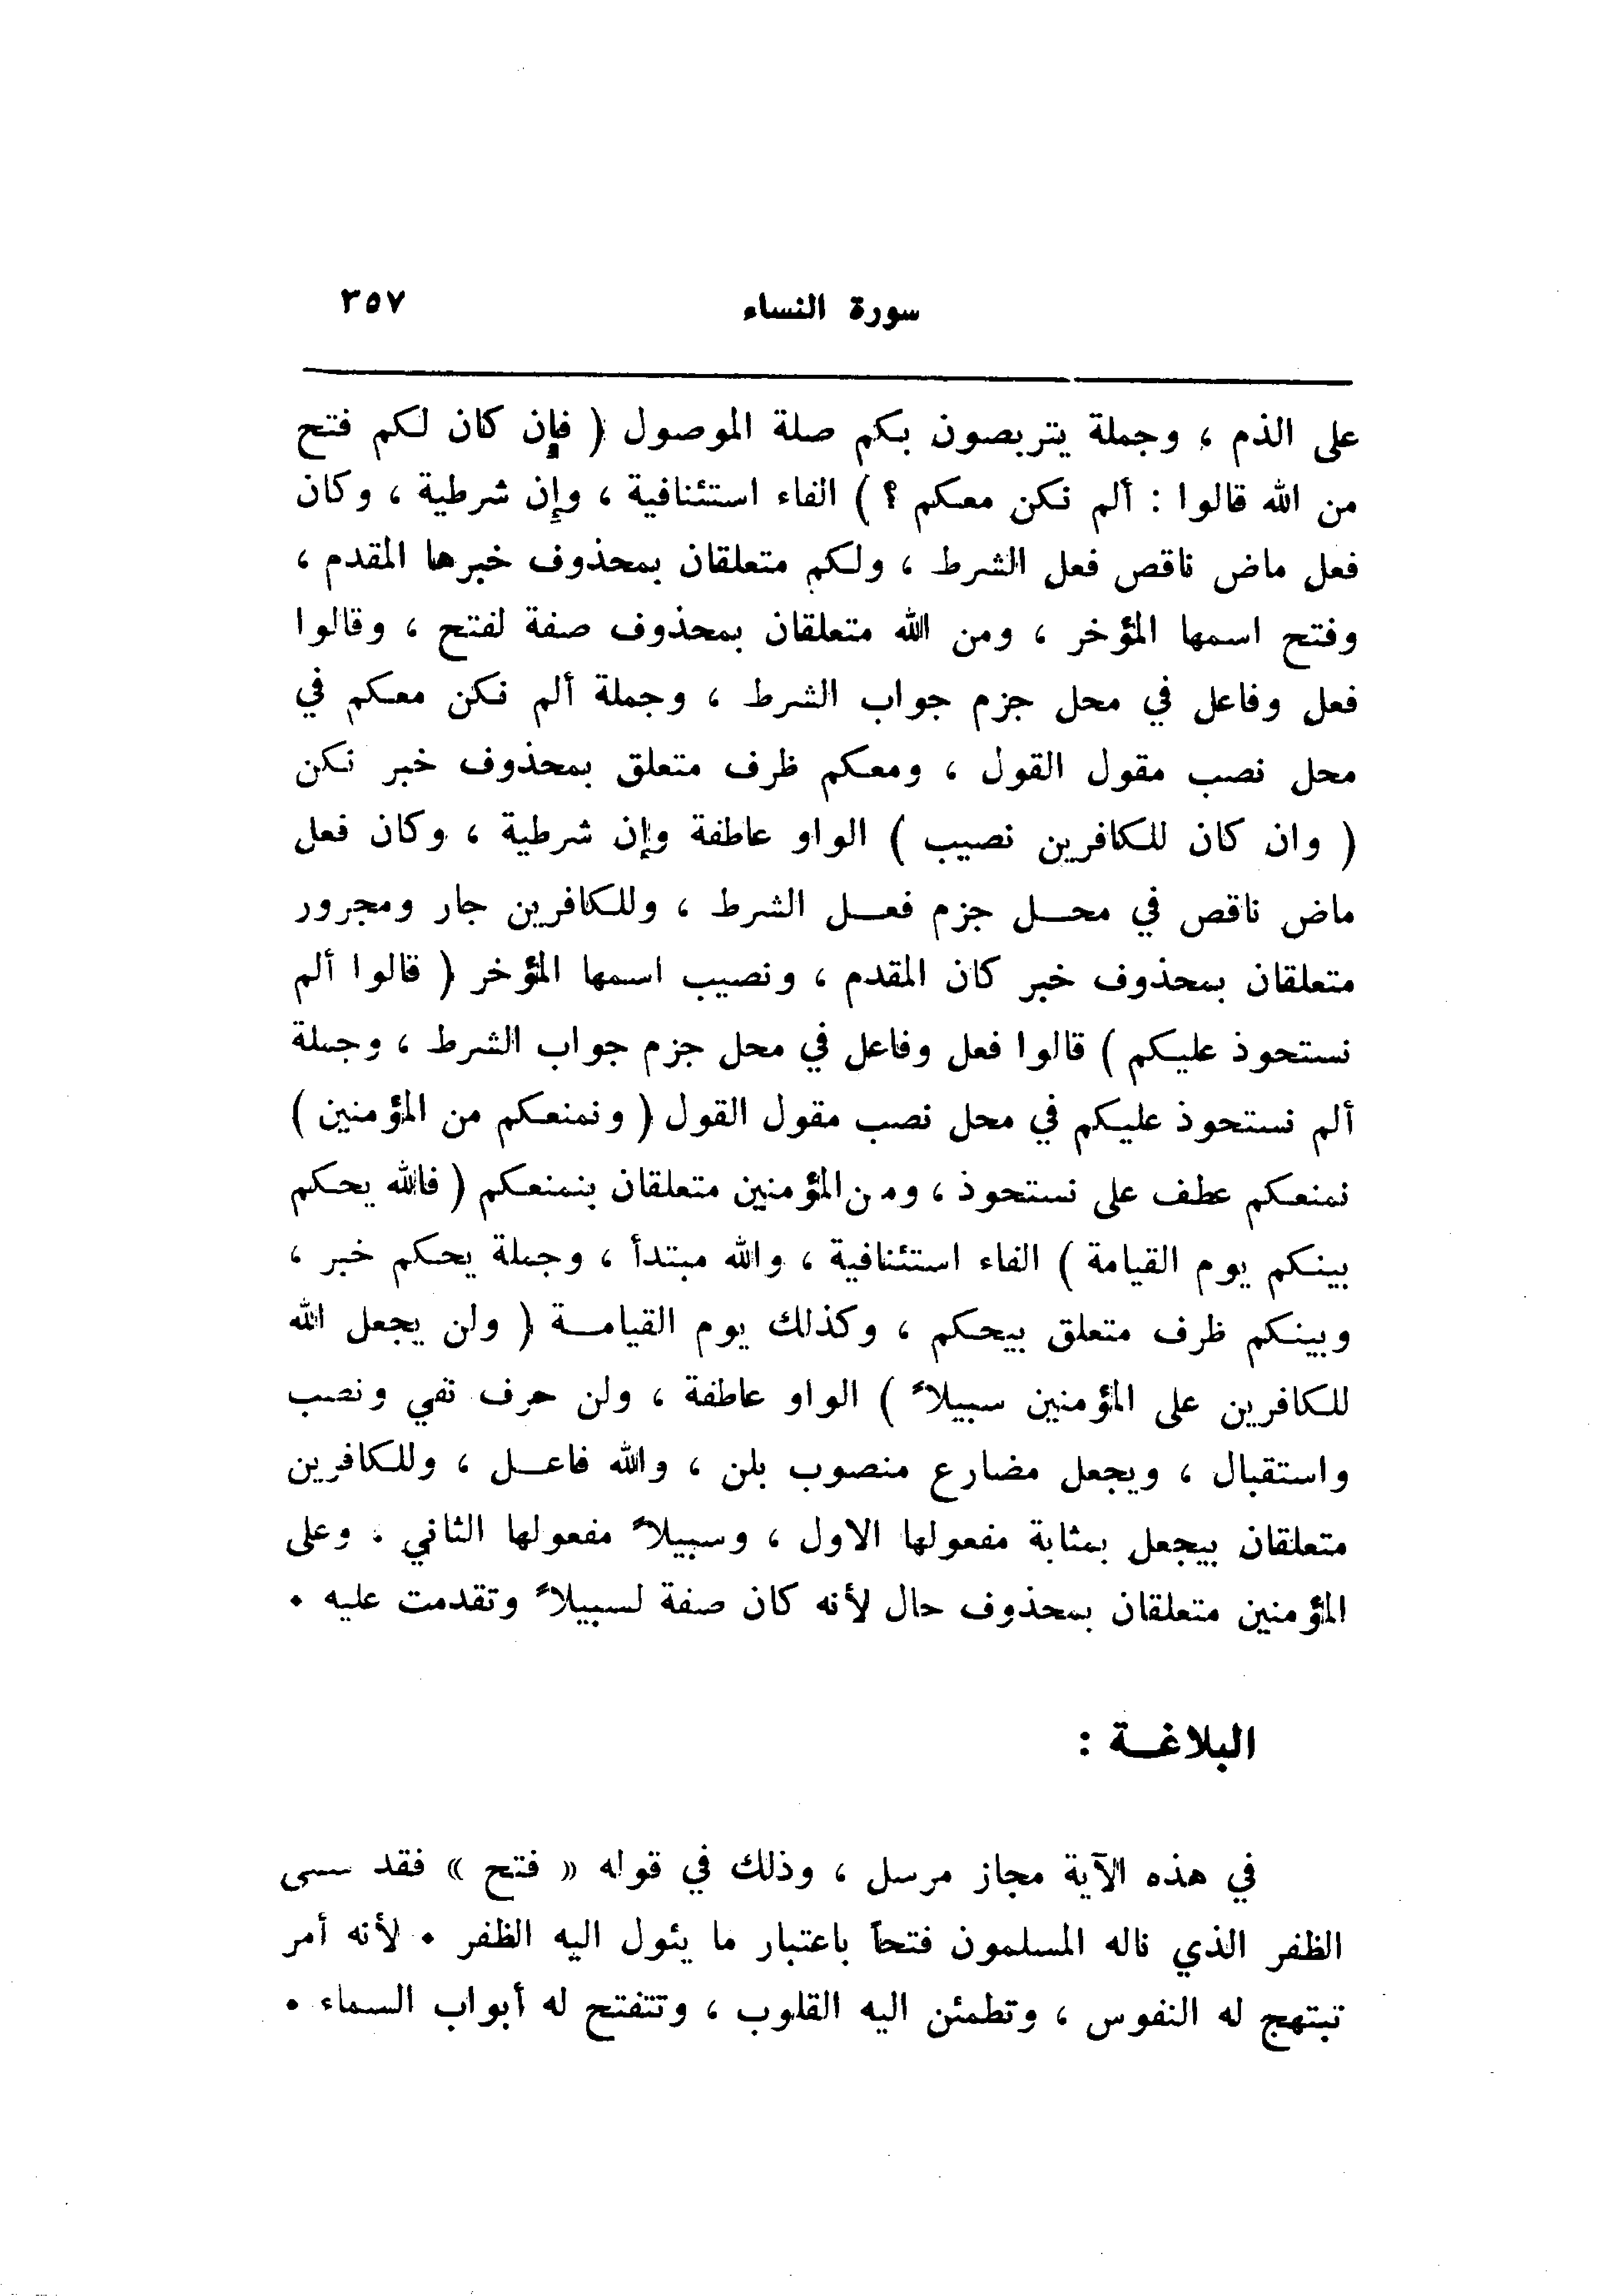 سورة النساء ٣٥٧
على الذم ، وجملة يتربصون بكم صلة الموصول ( فإن كان لكم فتح
من الله قالوا : ألم نكن معكم ؟ ) الفاء استئنافية ، وإن شرطية ، وكان
فعل ماض ناقص فعل الشرط ، ولكم متعلقان بمحذوف خبرها المقدم ،
وفتح اسمها المؤخر ، ومن الله متعلقان بمحذوف صفة لفتح ، وقالوا
فعل وفاعل في محل جزم جواب الشرط ، وجملة ألم نكن معكم في
محل نصب مقول القول ، ومعكم ظرف متعلق بمحذوف خبر نكن
( وان كان للكافرين نصيب ) الواو عاطفة وإن شرطية ، وكان فعل
ماض ناقص في محل جزم فعل الشرط ، وللكافرين جار ومجرور
متعلقان بمحذوف خبر كان المقدم ، ونصيب اسمها المؤخر ( قالوا ألم
نستحوذ عليكم ) قالوا فعل وفاعل في محل جزم جواب الشرط ، وجملة
ألم نستحوذ عليكم في محل نصب مقول القول ( ونمنعكم من المؤمنين )
نمنعكم عطف على نستحوذ ، ومن المؤمنين متعلقان بنمنعكم ( فالله يحكم
بينكم يوم القيامة ) الفاء استئنافية ، والله مبتدأ ، وجملة يحكم خبر ،
وبينكم ظرف متعلق بيحكم ، وكذلك يوم القيامة ( ولن يجعل الله
للكافرين على المؤمنين سبيلاً ) الواو عاطفة ، ولن حرف نفي ونصب
واستقبال ، ويجعل مضارع منصوب بلن ، والله فاعل ، وللكافرين
متعلقان بيجعل بمثابة مفعولها الاول ، وسبيلاً مفعولها الثاني ، وعلى
المؤمنين متعلقان بمحذوف حال لأنه كان صفة لسبيلاً وتقدمت عليه .
البلاغة :
في هذه الآية مجاز مرسل ، وذلك في قوله « فتح » فقد سمى
الظفر الذي ناله المسلمون فتحاً باعتبار ما يئول اليه الظفر . لأنه أمر
تبتهج له النفوس ، وتطمئن اليه القلوب ، وتتفتح له أبواب السماء .